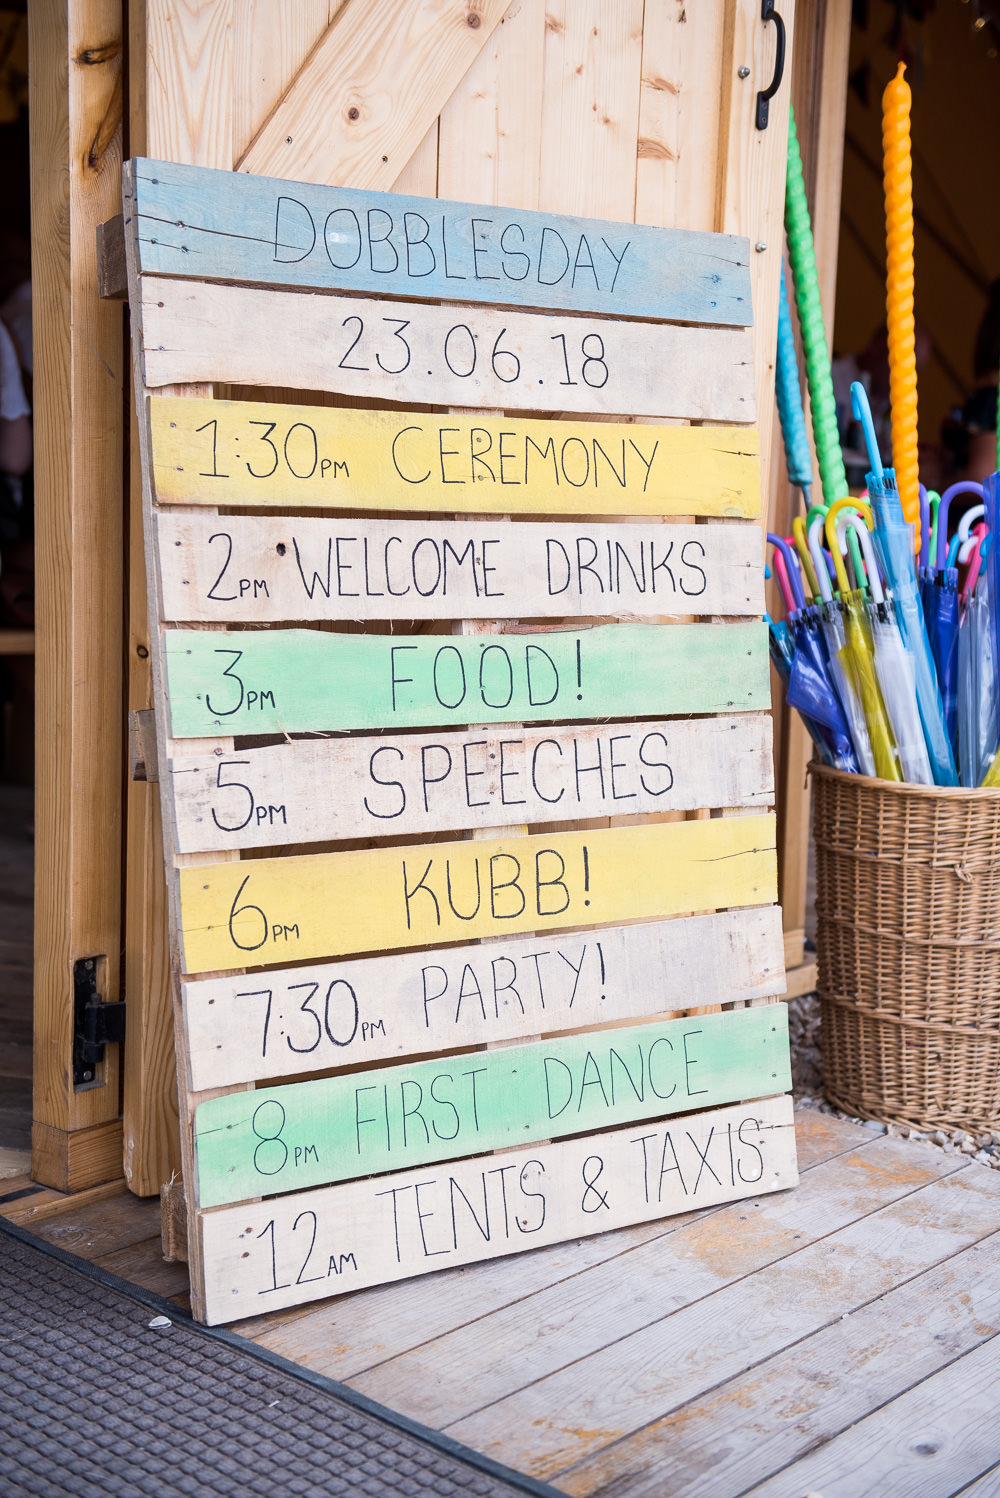 DOBBLESDAY
23.06.18
1:30PM CEREMONY
2PM WELCOME DRINKS
3PM FOOD!
5PM SPEECHES
6PM KUBB!
7:30PM PARTY!
8PM FIRST DANCE
12AM TENTS & TAXIS